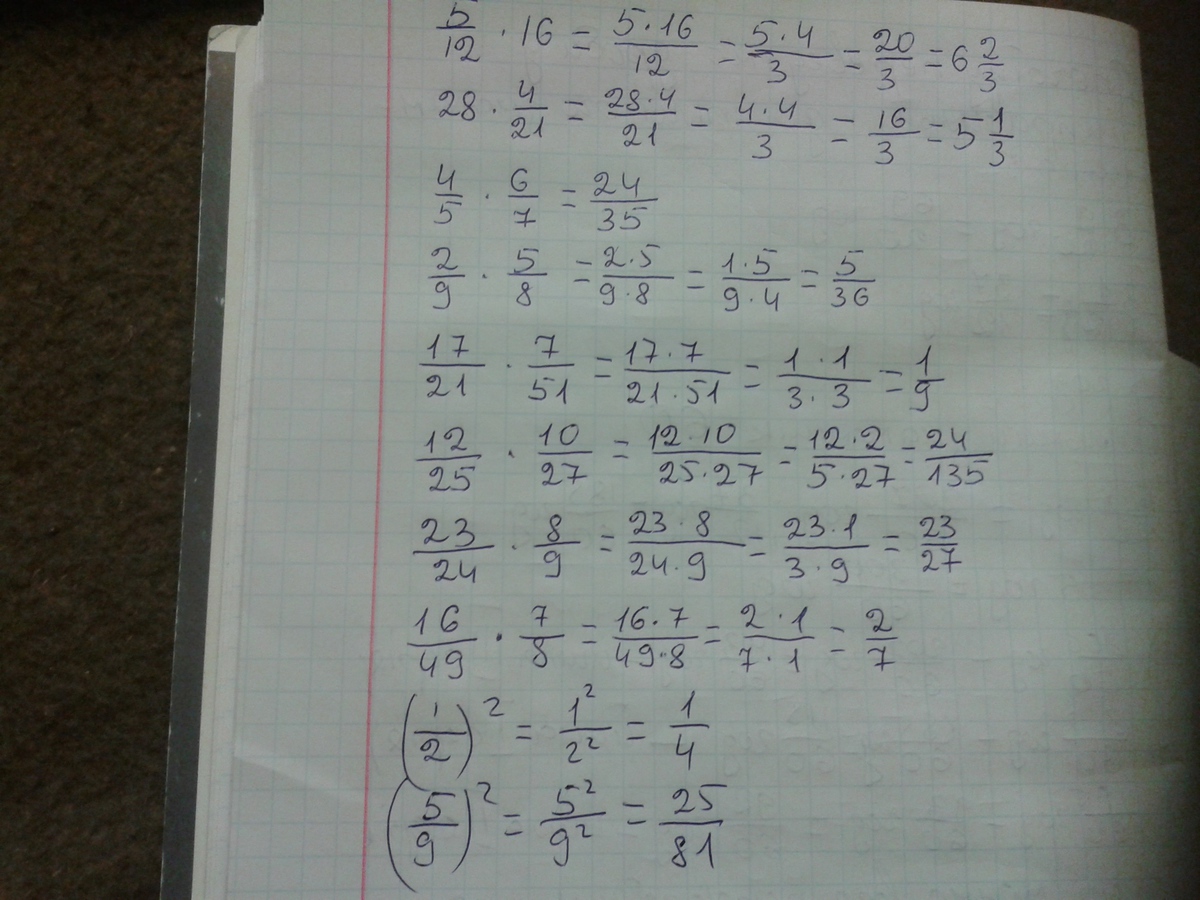 5/12 · 16 = 5·16/12 = 5·4/3 = 20/3 = 6 2/3
28 · 4/21 = 28·4/21 = 4·4/3 = 16/3 = 5 1/3
4/5 · 6/7 = 24/35
2/9 · 5/8 = 2·5/9·8 = 1·5/9·4 = 5/36
17/21 · 7/51 = 17·7/21·51 = 1·1/3·3 = 1/9
12/25 · 10/27 = 12·10/25·27 = 12·2/5·27 = 24/135
23/24 · 8/9 = 23·8/24·9 = 23·1/3·9 = 23/27
16/49 · 7/8 = 16·7/49·8 = 2·1/7·1 = 2/7
(1/2)² = 1²/2² = 1/4
(5/9)² = 5²/9² = 25/81